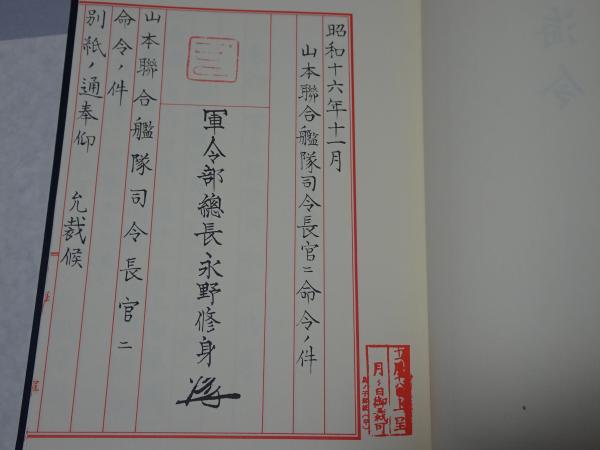 昭和十六年十一月
山本聯合艦隊司令長官ニ命令ノ件
軍令部總長永野修身
山本聯合艦隊司令長官ニ
命令ノ件
別紙ノ通奉仰 允裁候
上呈
月 日御裁可
海
令